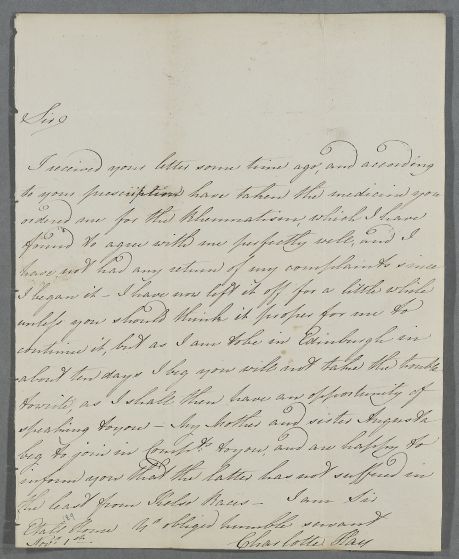 Sir
I received your letter some time ago, and according
to your prescription have taken the medicine you
ordered me for the Rheumatism, which I have
found to agree with me perfectly well, and I
have not had any return of my complaints since
I began it - I have now left it off for a little while
unless you should think it proper for me to
continue it, but as I am to be in Edinburgh in
about ten days I beg you will not take the trouble
to write, as I shall then have an opportunity of
speaking to you - My Mother and sister Augusta
beg to join in Compts. to you, and are happy to
inform you that the latter has not suffered in
the least from Kelso Races - I am Sir
Yr. obliged humble servant
Novr. 1st. Charlotte Hay